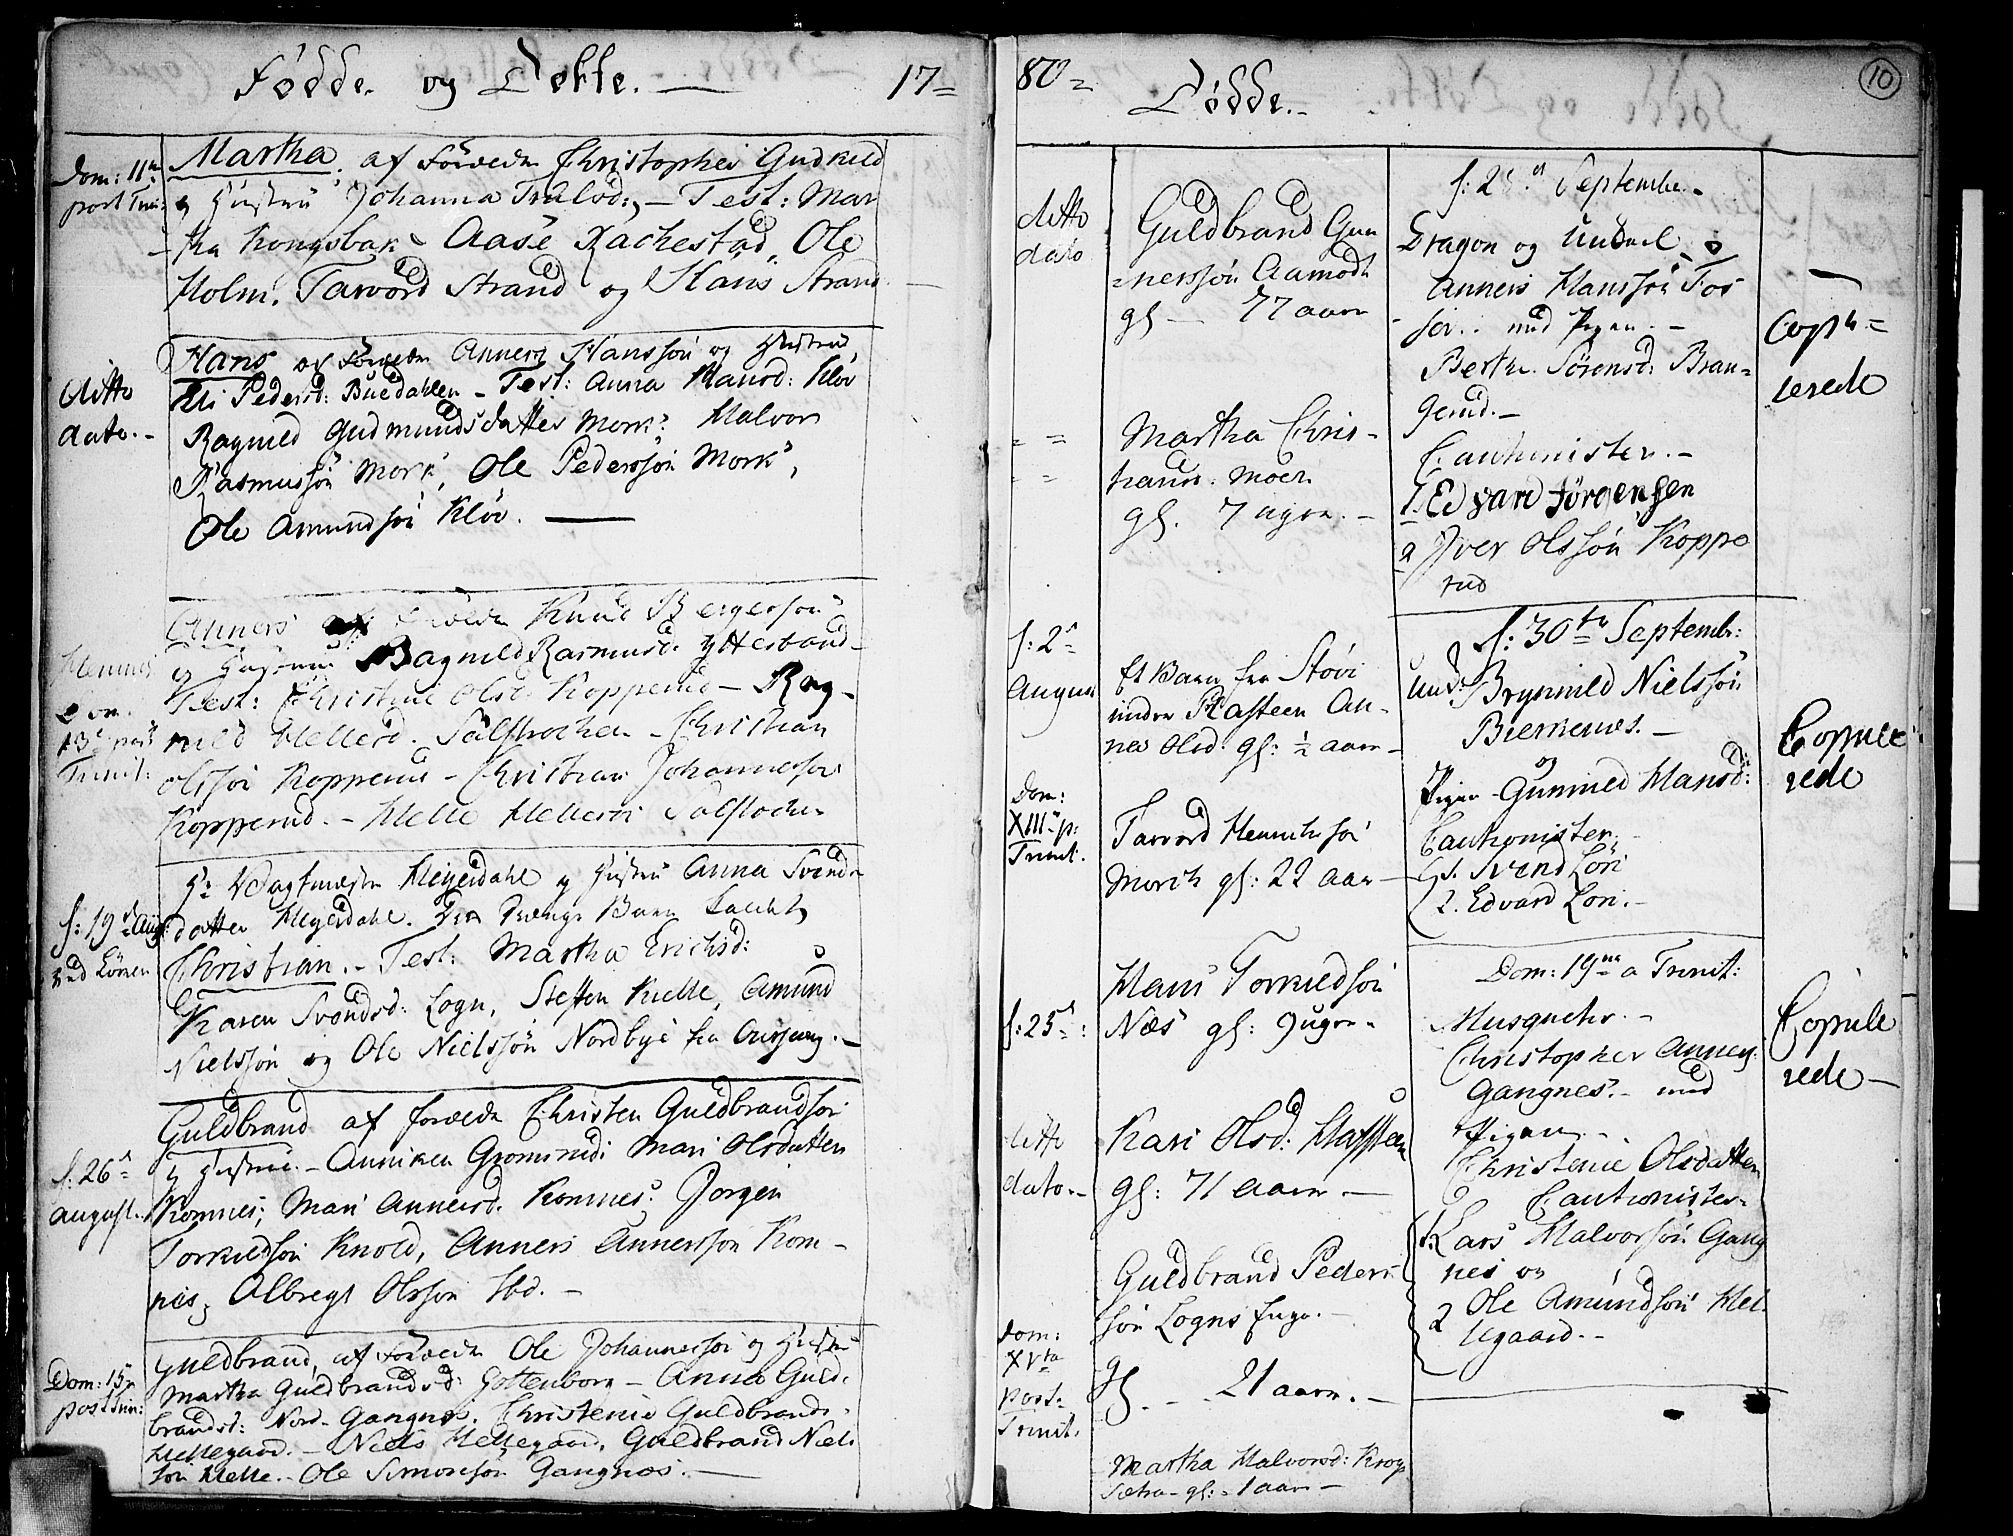 Fødde og Døbte. — 17=
Dom: 11te
post Trin:
Martha. af Forældr Christopher Gudkild
og Hustrue Johanna Trulsd: — Test: Mar
tha Kongsbak - Aase Rachestad, Ole
Holm. Tarvord Strand og Hans Strand.
ditto
dato. -
Hans af Forældr Anners Hanssøn og Hustrue
Eli Pedersd: Buedahlen - Test: Anna Hansd: Kløv
Ragnild Gudmundsdatter Mork. Halvor
Rasmussøn Mork, Ole Pederssøn Mork,
Ole Amundsøn Kløv. —
Hemnes
Dom.
13de post
Trinit:
Anners af Forældr Knud Bergerssøn
og Hustrue Ragnild Rasmusd. Yttesband
Test: Christine Olsd Kopperud - Rag-
nild Hellesd. Sølstrochen - Christian
Olssøn Kopperud - Christian Johannessøn
Kopperud. - Helle Hellessøn Sølstochen
f: 19de Aug:
ved Løren
Hr Wagtmester Heyerdahl og Hustru Anna Svends
datter Heyerdahl. Dres Drenge Barn kaldt
Christian. - Test: Martha Erichsd:
Karen Svendsd: Logn, Steffen Kielle, Amund
Nielssøn og Ole Nielssøn Nordbye fra Aursoug. -
f: 26de
August.
Guldbrand af forældr Christen Guldbrandsøn
og Hustrue. - Anniken Gromsrud: Mari Olsdatter
Komnes; Mari Annersd. Komnes; Jørgen
Torkildsøn Knold, Anners Annerssøn Kom-
nes; Albregt Olssøn Ibd. -
Dom: 15de
post Trin:
Guldbrand, af Forældr Ole Johannessøn og Hustrue
Martha Guldbrandsd: Gottenborg - Anna Guld.
brandst: Nord-Gangnes. Christenie Guldbrands.
Hellegaard. - Niels Hellegaard. Guldbrand Niels
søn Helle. - Ole Simonsøn Gangnæs. —
80=
Dødde. -
10
ditto
dato
Guldbrand Gun
=nerssøn Aamodt
gl — 77 aar
Martha Chris-
tians. Moen
gl. 7 ugr. -
f: 2de
August
Et Barn fra Støvi
under Hasteen An-
nes Olsd: gl: ½ aar -
Dom:
XIIIde p:
Trinit:
Tarvord Henrichsøn
Morch gl: 22 aar -
f: 25de:
Hans Torkildsøn
Næs gl: 9 ugr. -
ditto
dato. -
Kari Olsd: Hassteen
gl: 71 aar. -
Dom:
XVta
post:
Trinit.
Guldbrand Peders
søn Logns Enge. -
gl. - - 21 aar. -
Martha Halvorsd: Krog
Sætra - gl: - 1 aar -
f: 28de Septembr. -
Dragon og Undvel.
Anners Hanssøn Fos
ser.. med Pigen. -
Berthe Sørensd: Bran=
gerud. -
Cautionister. -
1. Edvard Jørgensen
2 Iver Olssøn Koppe
rud
Copu=
lerede
f: 30te Septembr:
Und: Brynnild Nielssøn
Bierkenes. -
og
Pigen - Gunnild Hansd:
Cautionister. -
1. Svend Løri
2. Edvard Løri. -
Copule
rede
Dom: 19na a Trinit:
Musquetr. -
Christopher Anners:
Gangnes. - med
Pigen -
Christenie Olsdatter
Cautionister.
1. Lars Halvorsøn Gang
nes og
2 Ole Amundsøn Hel
legaard. -
Copule
rede -